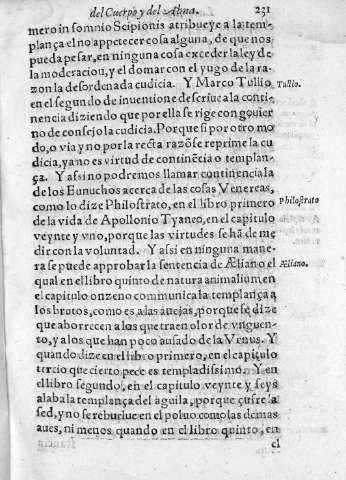 del Cuerpo y del Alma. 231
mero in somnio Scipionis atribueye a la tem-
plança el no appetecer cosa alguna, de que nos
pueda pesar, en ninguna cosa exceder la ley de
la moderaciou, y el domar con el yugo de la ra-
zon la desordenada cudicia. Y Marco Tullio Tullio.
en el segundo de inuentione descriue a la conti-
nencia diziendo que por ella se rige con gouier
no de consejo la cudicia. Porque si por otro mo
do, o via y no por la recta razõ se reprime la cu
dicia, ya no es virtud de continẽcia o templan-
ça. Y assi no podremos llamar continencia la
de los Eunuchos acerca de las cosas Venereas,
como lo dize Philostrato, en el libro primero Philostrato
de la vida de Apollonio Tyaneo, en el capitulo
veynte y vno, porque las virtudes se hã de me
dir con la voluntad. Y assi en ninguna mane-
ra se puede approbar la sentencia de Æliano el Æliano.
qual en el libro quinto de natura animalium en
el capitulo onzeno communica la templança a
los brutos, como es a las auejas, porque se dize
que aborrecen a los que traen olor de vnguen-
to, y a los que han poco ausado de la Venus. Y
quando dize en el libro primero, en el capitulo
tercio que cierto pece es templadissimo. Y en
el libro segundo, en el capitulo veynte y seys
alaba la templança del aguila, porque çufre la
sed, y no se rebuelue en el poluo como las demas
aues, ni menos quando en el libro quinto, en
el